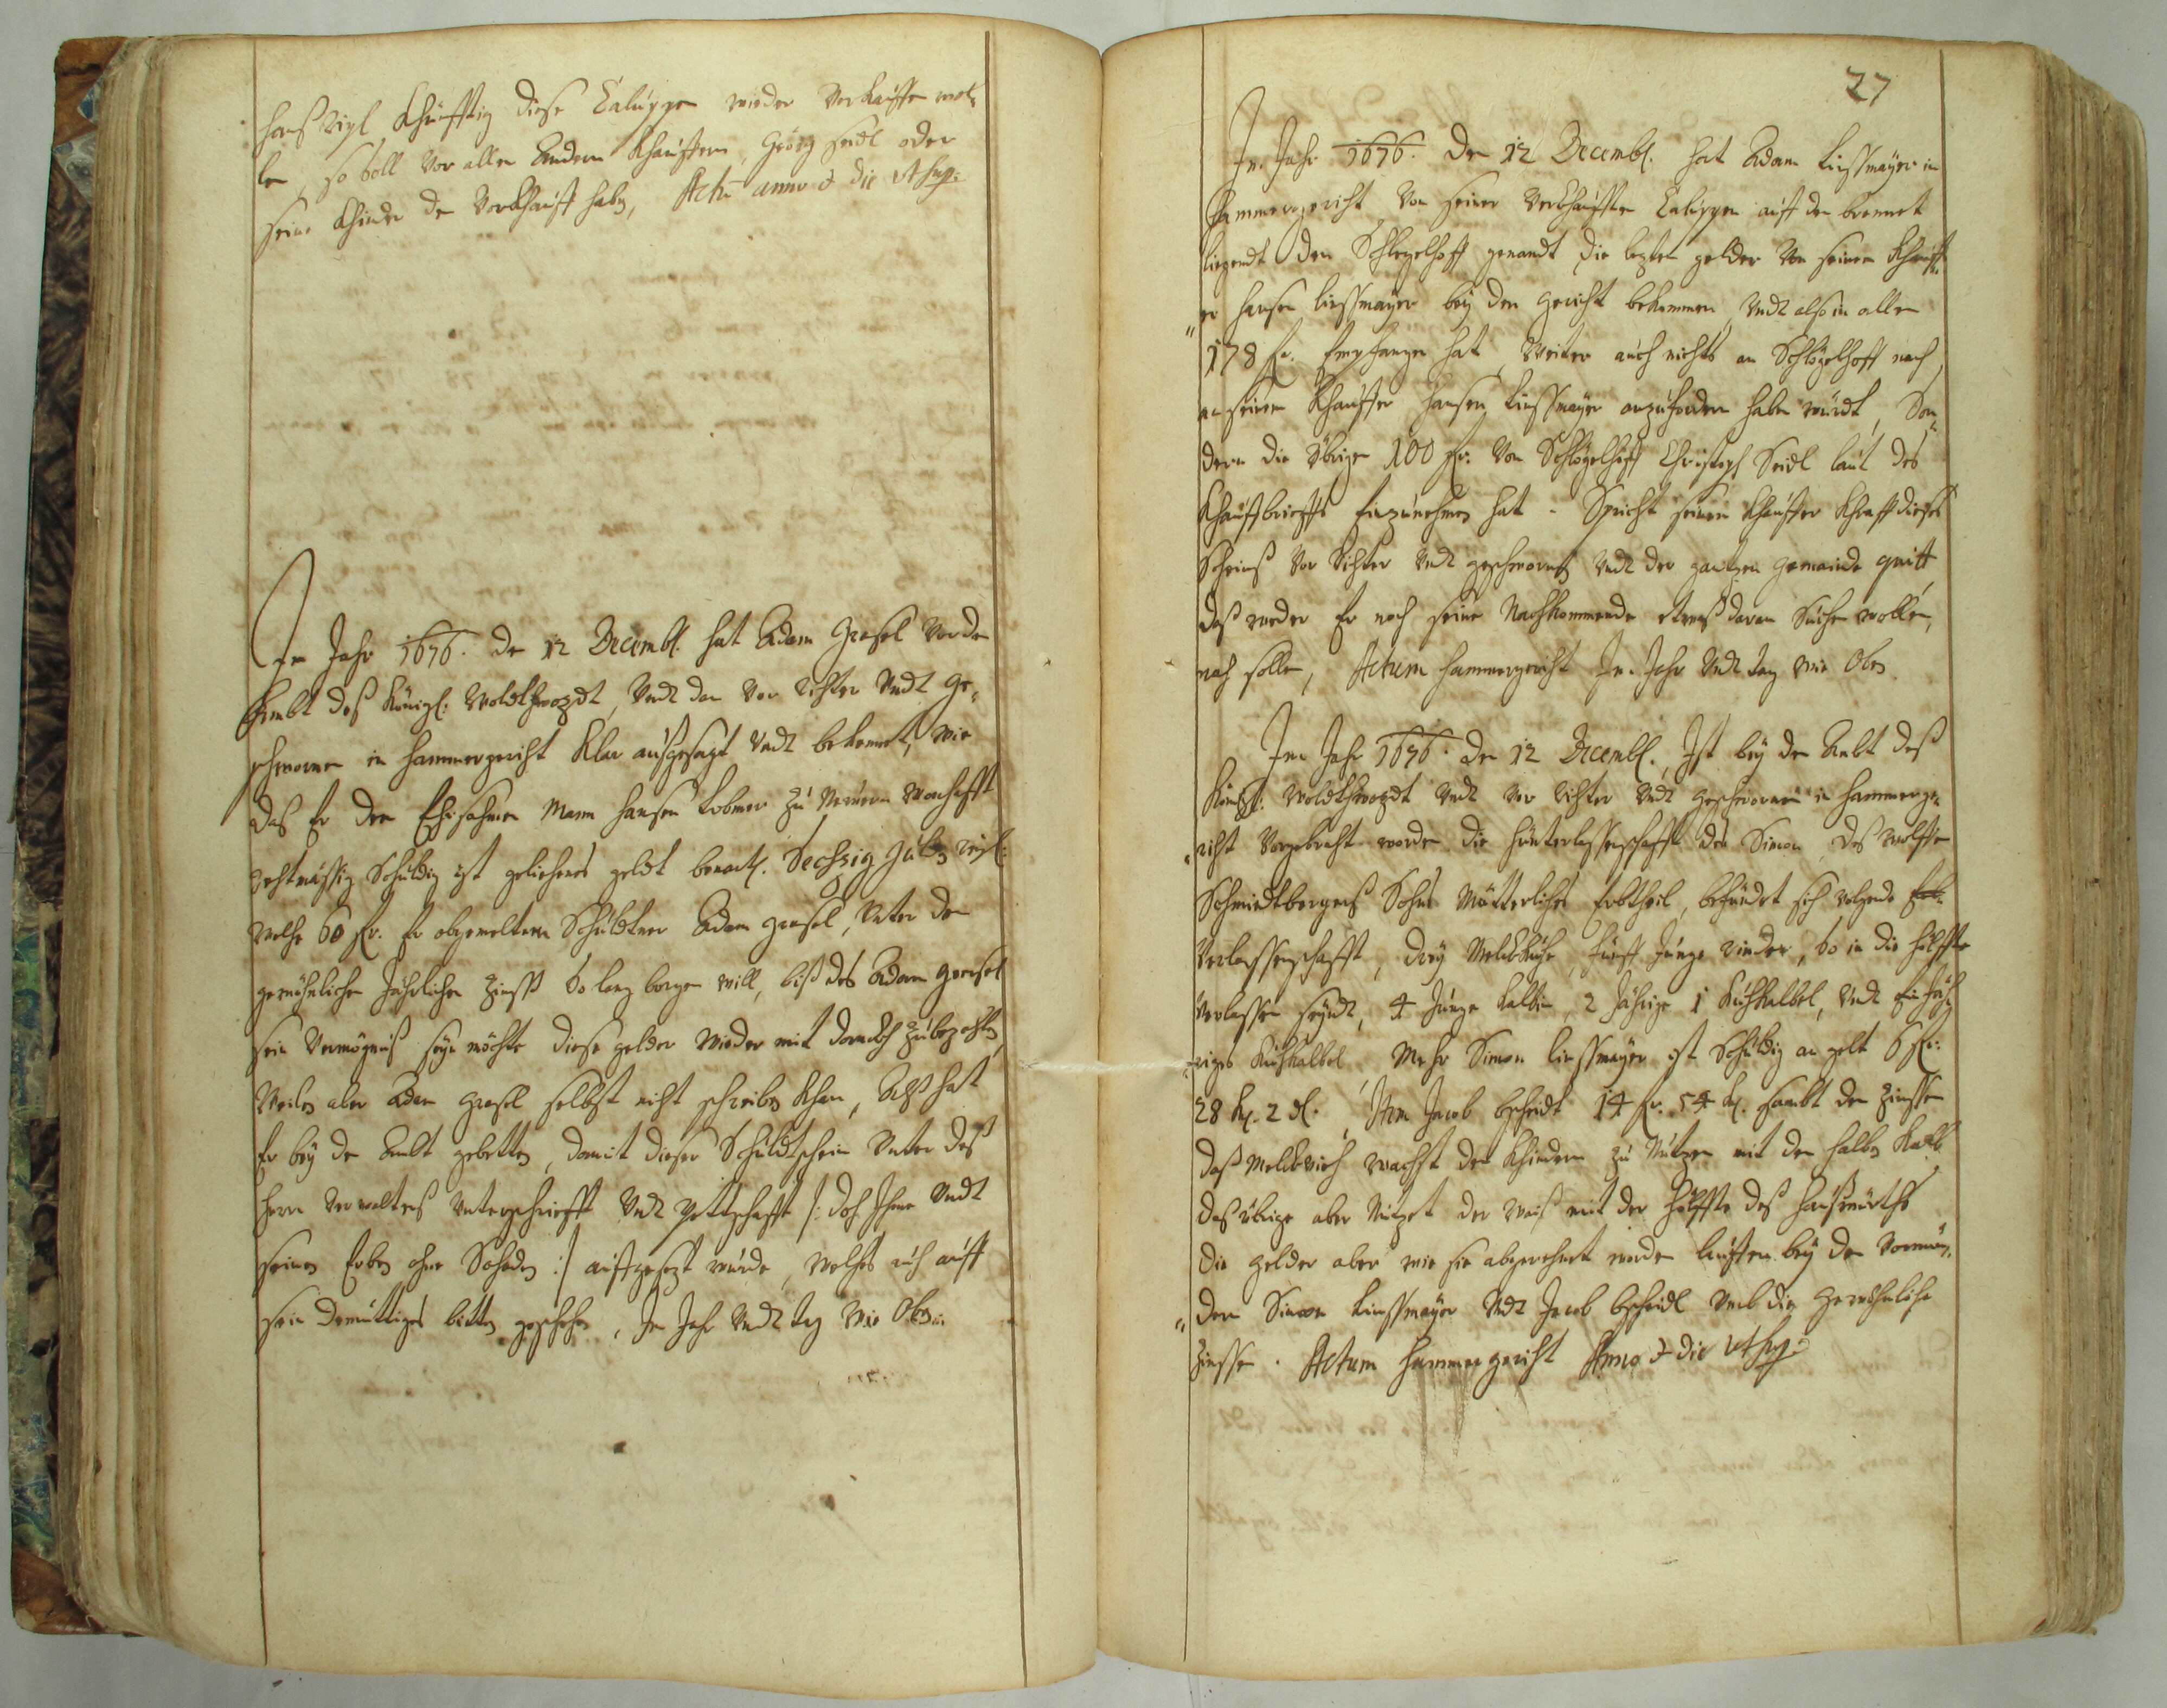 hanß Vigl khünfftig diese Caluppen wieder verkauffen wol„
len, so soll vor allen Andern khauffern, Geörg Seidl oder
seine khinder den vorkhauff haben, Actũ anno & die ut supr:
Im Jahr 1676. den 12 Decembl. hat Adam Grasel vor dem
Ambt deß königl: Woldthwozdt, Undt dan vor richter Undt ge„
schwornen in hammergericht klar außgesagt Undt bekennet, wie
daß Er dem Ehrsahmen Mann hansen Lobmer zu Neuern
rechtmässig schuldig ist geliehenes geldt benantl. Sechzig gulden
welche 60 fl. Er obgemeltem Schuldtner Adam Grasel, Unter dem
gewöhnlichen Jährlichen Zinß so lang borgen will, biß des Adam Grasel
sein Vermögniß seyn möchte diese gelder wieder mit danckh zubezahlen,
Weilen aber Adam Grasel selbst nicht schreiben khan, Alß hat
Er bey dem Ambt gebetten, damit dieser Schuldtschein Unter deß
herrn Verwalterß Unterschrifft Undt pettschafft /: doch Ihme Undt
seinen Erben ohne Schaden :/ auffgesezt wurde, welches auch auff
sein demüttiges bitten geschehen, Im Jahr Undt tag wie Oben.
27
Im Jahr 1676. den 12 Decembl. hat Adam Linssmayer in
hammergericht von seiner verkhaufften Caluppen auff den brennet
liegendt den Schlegelhoff genandt die lezten gelder von seinem khauff„
„er hansen Linssmayer bey den gericht bekommen, Undt also in allen
178 fl. Empfangen hat, Weiter auch nichts am Schlögelhoff noch
an seinem khauffer hansen Linssmayer anzufordern haben würdt, Son„
dern die Übrige 100 fl. vom Schlögelhoff Christoph Seidl laut des
khauffbrieffs Einzunehmen hat. Spricht seinen khauffer khrafft dieses
Scheinß vor richter Undt geschwornen Undt der gantzen gemainde quitt,
daß weder Er noch seine Nachkommende etwaß daran Suchen wollen,
noch sollen, Actum hammergericht Im Jahr Undt tag wie Oben.
Im Jahr 1676. den 12 Decembl., Ist bey dem Ambt deß
königl: Woldthwozdt Undt vor richter Undt geschwornen in hammerge„
„richt Vorgebracht worden die hünterlassenschafft des Simon, des wolffen
Schmiedtbergers Sohns Mütterliches Erbtheil, befündt sich volgende
Verlassenschafft, drey Melckkühe, fünff Junge rinder, so in die helffte
verlassen seyndt, 4 Junge kalbin, 2 Jährige 1 kuhkalbel, Undt ein Jäh„
„riges kuhkalbel. Mehr Simon Linssmayer ist schuldig an gelt 6 fl:
28 kr. 2 dl. Item Jacob bscheidl 14 fl. 54 kr. sambt den Zinssen
daß Melckvieh wachst den khindern zu Nutzen mit den halben kalb
daß übrige aber Nutzet der waiß mit der helffte deß haußwürths
die gelder aber wie sie abgerechnet worden lauffen bey den vormün„
„dern Simon Linssmayer Undt Jacob bscheidl Umb die gewöhnliche
Zinsse. Actum hammergericht Anno & die ut supr: